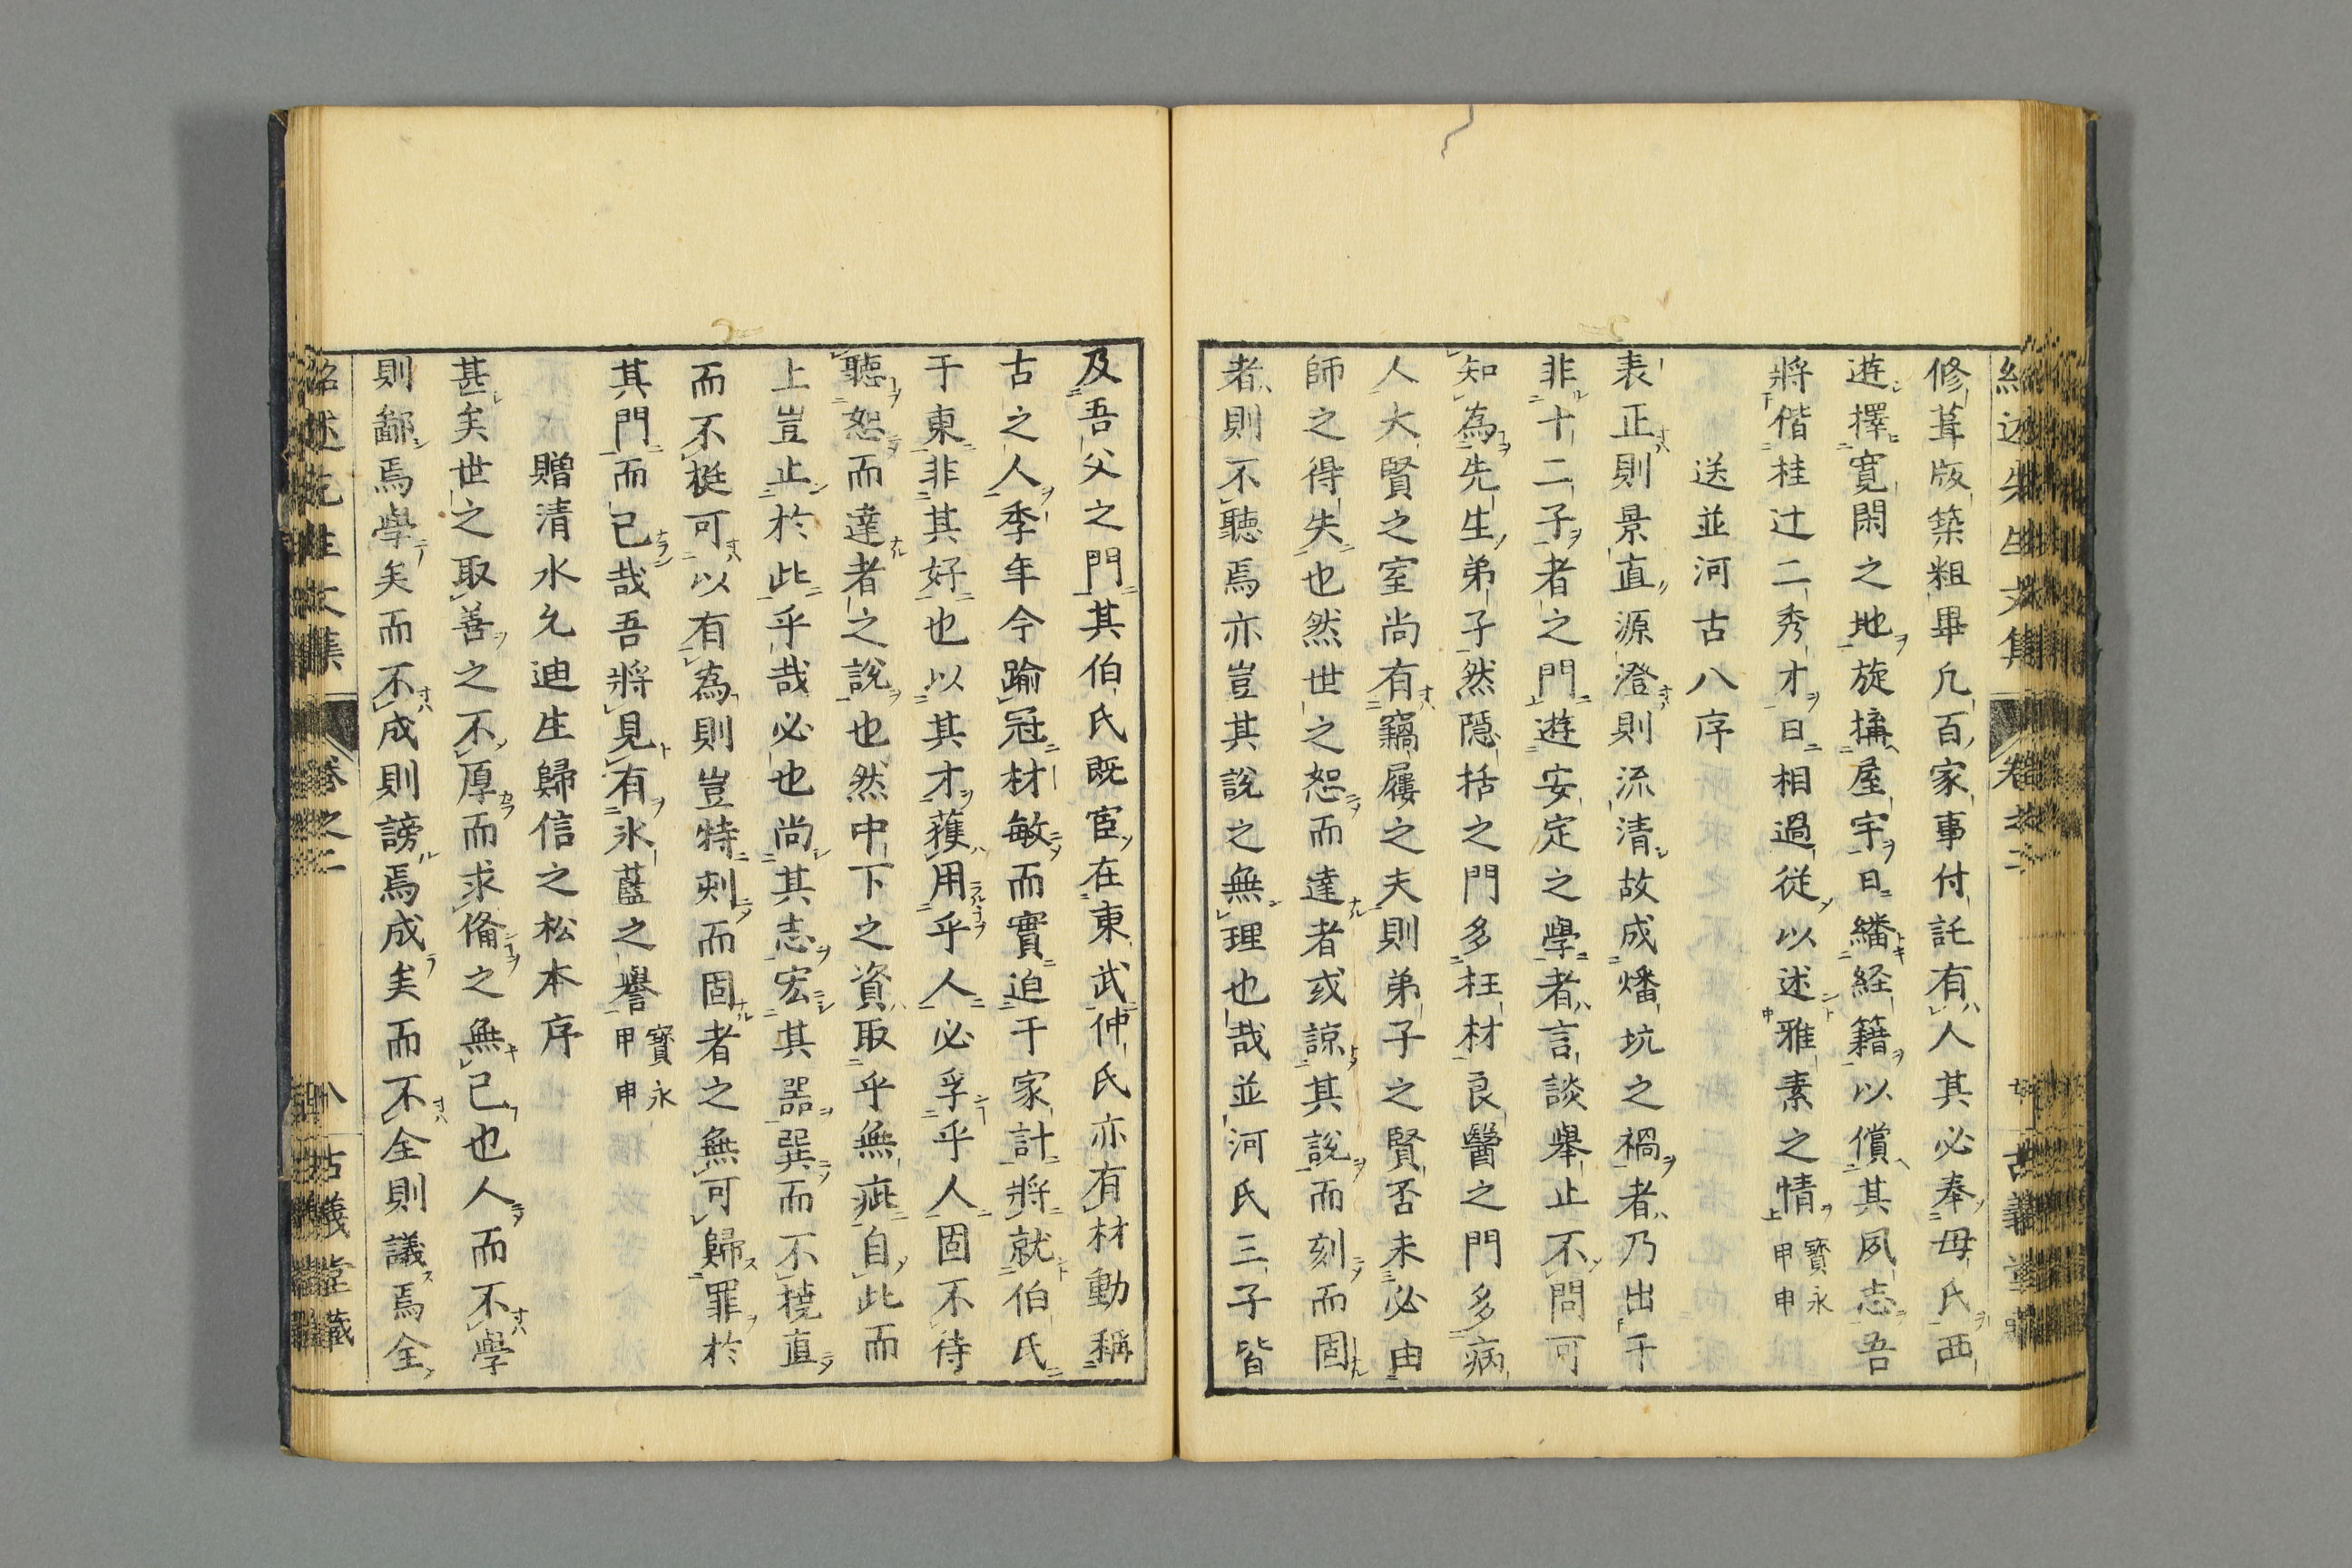 紹述先生文集 卷之二 古義堂藏
修葺版築粗畢凡百家事付託有人其必奉母氏西
遊擇寬閑之地旋搆屋宇日繙経籍以償其夙志吾
將偕桂辻二秀才日相過從以述雅素之情寳永甲申
送並河古八序
表正則景直源澄則流清故成燔坑之禍者乃出于
非十二子者之門遊安定之學者言談舉止不問可
知為先生弟子然隱括之門多枉材良醫之門多病
人大賢之室尚有竊屨之夫則弟子之賢否未必由
師之得失也然世之恕而達者或諒其說而刻而固
者則不聽焉亦豈其說之無理也哉並河氏三子皆
及吾父之門其伯氏既宦在東武仲氏亦有材動稱
古之人季年今踰冠材敏而實迫于家計將就伯氏
于東非其好也以其才獲用乎人必孚乎人固不待
聽恕而達者之說也然中下之資取乎無疵自此而
上豈止於此乎哉必也尚其志宏其器巽而不撓直
而不梃可以有為則豈特刺而固者之無可歸罪於
其門而已哉吾將見有氷藍之譽寳永甲申
贈清水允迪生歸信之松本序
甚矣世之取善之不厚而求備之無已也人而不學
則鄙焉學矣而不成則謗焉成矣而不全則議焉全
紹述先生文集 卷之二 八 古義堂藏